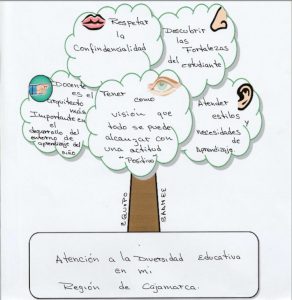 Respetar
la
Confindencialidad
Descubrir
las
Fortalezas
del estudiante
Docente
es el
arquitecto
más
Importante en
el
desarrollo del
entorno de
aprendizaje del
niño
Tener
como
visión que
todo se puede
alcanzar con
una actitud
"Positiva"
Atender
estilos
y
necesidades de
Aprendizaje.
EQUIPO
SAANEE
Atención a la Diversidad Educativa
en mi
Región de Cajamarca.